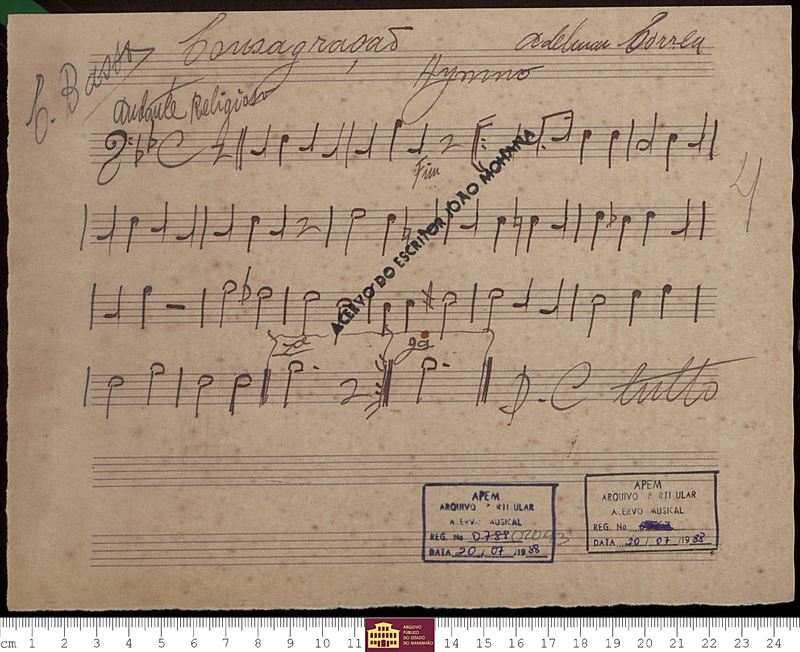 Consagração Adelman Correa
C. Basso
Hymno
Andante Religioso
Fim
4
ACERVO DO ESCRITOR JOÃO MOHANA
1a 2a
2
D. C tutto
APEM
ARQUIVO P RTI ULAR
ACERVO MUSICAL
REG. No 0788
DATA 20 / 07 /19 88
APEM
ARQUIVO P RTI ULAR
ACERVO MUSICAL
REG. No
DATA 20 / 07 /19 88
cm 1 2 3 4 5 6 7 8 9 10 11 14 15 16 17 18 19 20 21 22 23 24
ARQUIVO
PÚBLICO
DO ESTADO
DO MARANHÃO